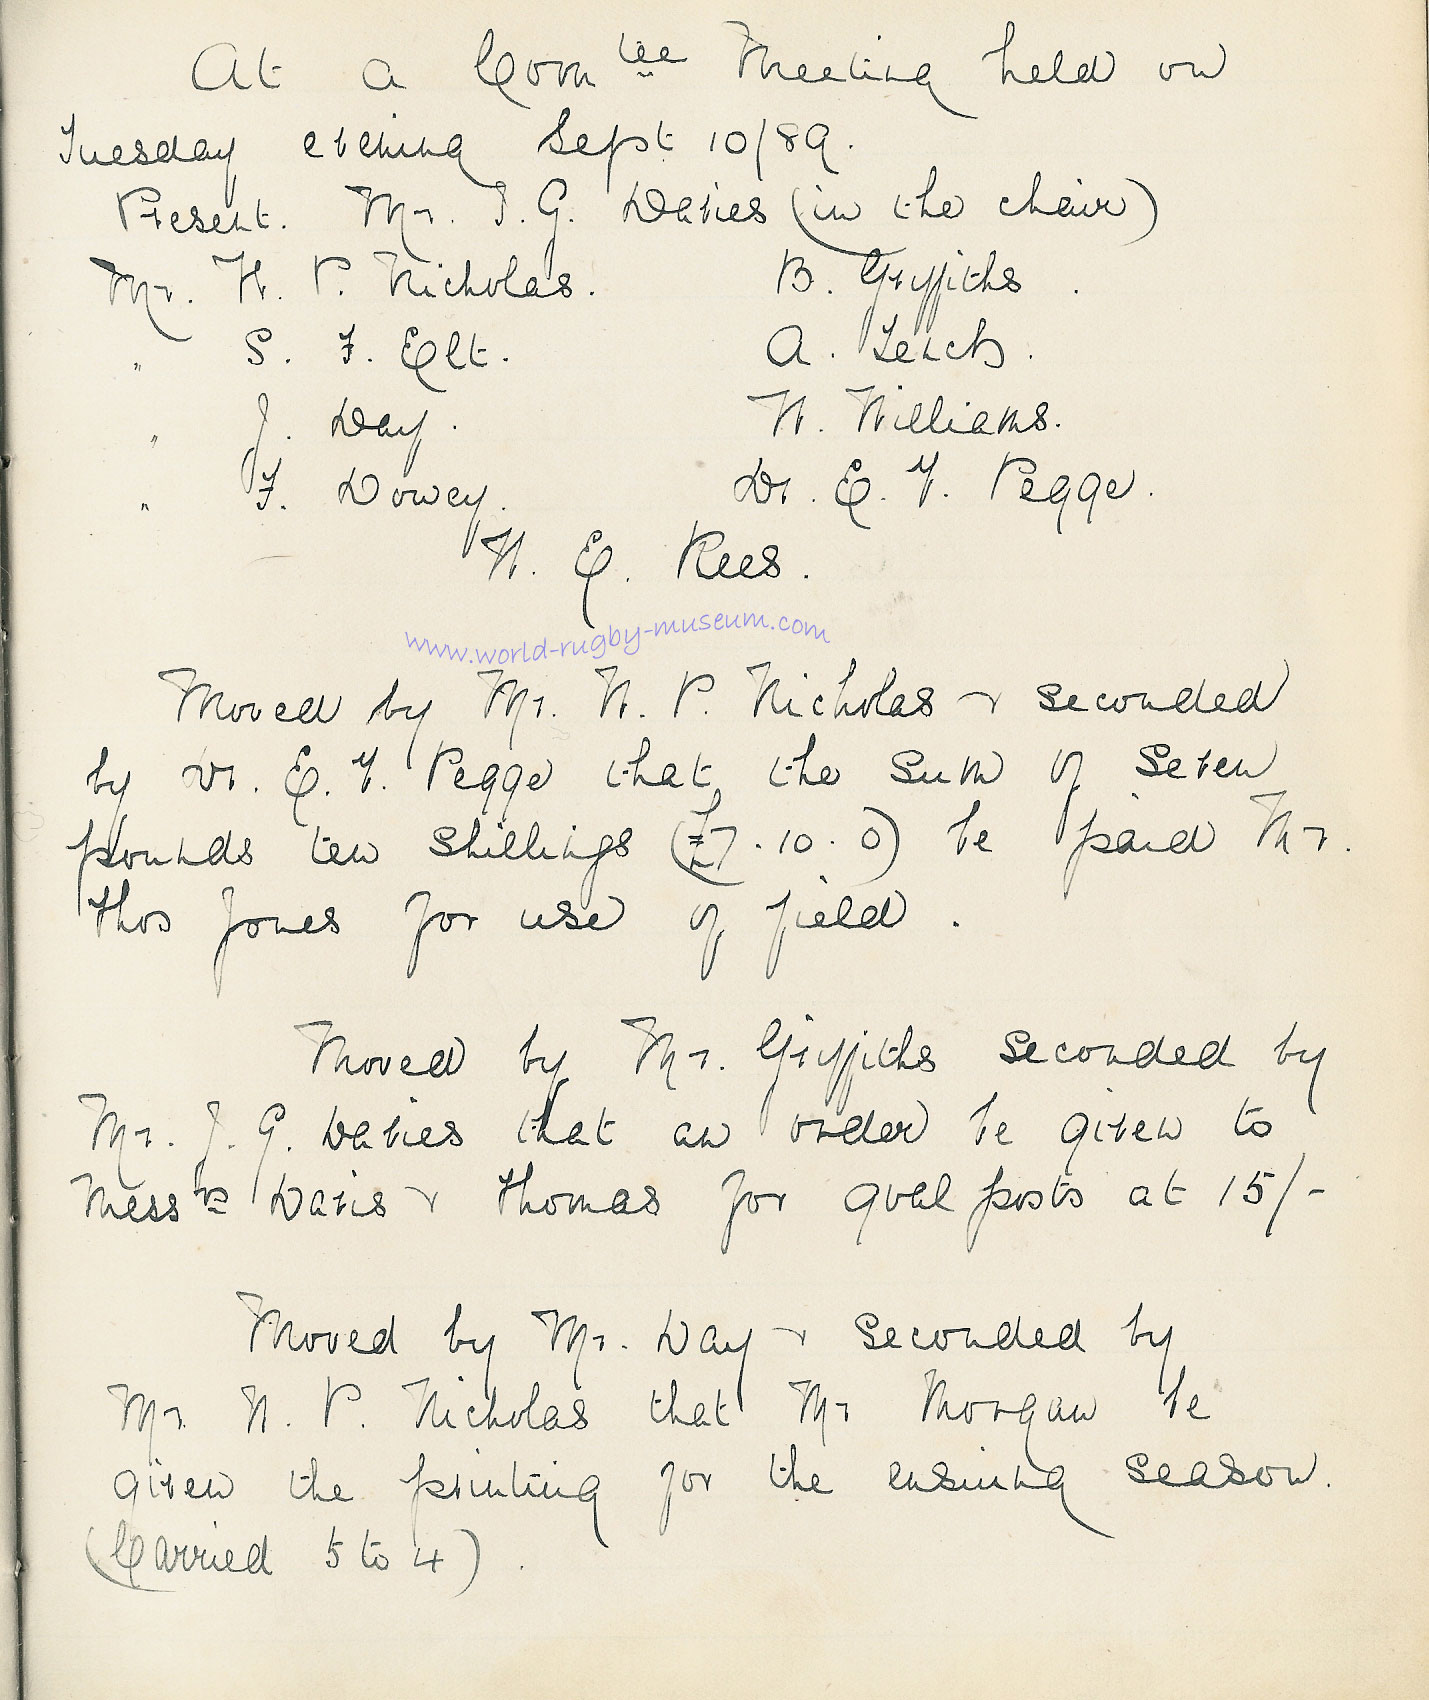 At a Com tee Meeting held on
Tuesday evening Sept 10/89.
Present. Mr. J. G. Davies (in the chair)
Mr. W. P. Nicholas. B. Griffiths.
" S. F. Elt. A. Lench.
" J. Day. W. Williams.
" F. Dowey. Dr. E. Y. Pegge.
W. E. Rees.
www.world-rugby-museum.com
Moved by Mr. W. P. Nicholas & seconded
by Dr. E. Y. Pegge that the sum of seven
pounds ten shillings (£7.10.0) be paid Mr.
Thos Jones for use of field.
Moved by Mr. Griffiths seconded by
Mr. J. G. Davies that an order be given to
Mess rs Davis & Thomas for goal posts at 15/-
Moved by Mr. Day & seconded by
Mr. W. P. Nicholas that Mr Morgan be
given the printing for the ensuing season.
(Carried 5 to 4).